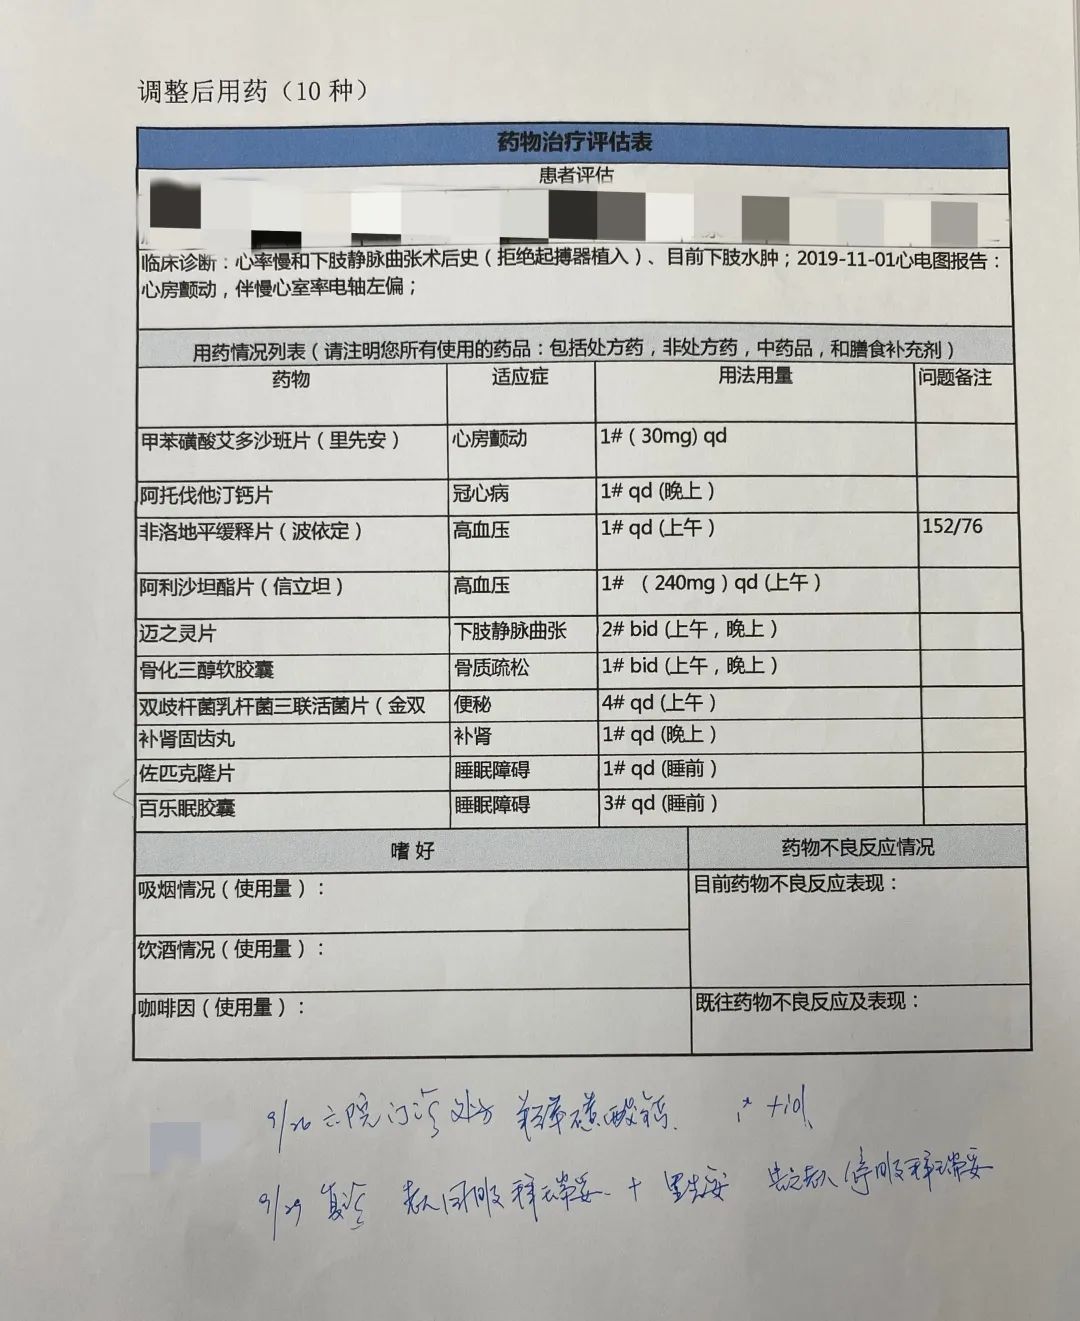 调整后用药（10 种）
药物治疗评估表
患者评估
临床诊断：心率慢和下肢静脉曲张术后史（拒绝起搏器植入）、目前下肢水肿；2019-11-01心电图报告：
心房颤动，伴慢心室率电轴左偏；
用药情况列表（请注明您所有使用的药品：包括处方药，非处方药，中药品，和膳食补充剂）
药物 适应症 用法用量 问题备注
甲苯磺酸艾多沙班片（里先安） 心房颤动 1#（30mg) qd
阿托伐他汀钙片 冠心病 1# qd (晚上）
非洛地平缓释片（波依定） 高血压 1# qd (上午） 152/76
阿利沙坦酯片（信立坦） 高血压 1# （240mg）qd (上午）
迈之灵片 下肢静脉曲张 2# bid (上午，晚上）
骨化三醇软胶囊 骨质疏松 1# bid (上午，晚上）
双歧杆菌乳杆菌三联活菌片（金双 便秘 4# qd (上午）
补肾固齿丸 补肾 1# qd (晚上）
佐匹克隆片 睡眠障碍 1# qd (睡前）
百乐眠胶囊 睡眠障碍 3# qd (睡前）
嗜 好 药物不良反应情况
吸烟情况（使用量）： 目前药物不良反应表现：
饮酒情况（使用量）：
咖啡因（使用量）： 既往药物不良反应及表现：
9/26 六院门诊处方 羟苯磺酸钙 tid
9/29 复诊 老人同服 + 里先安 老人停服